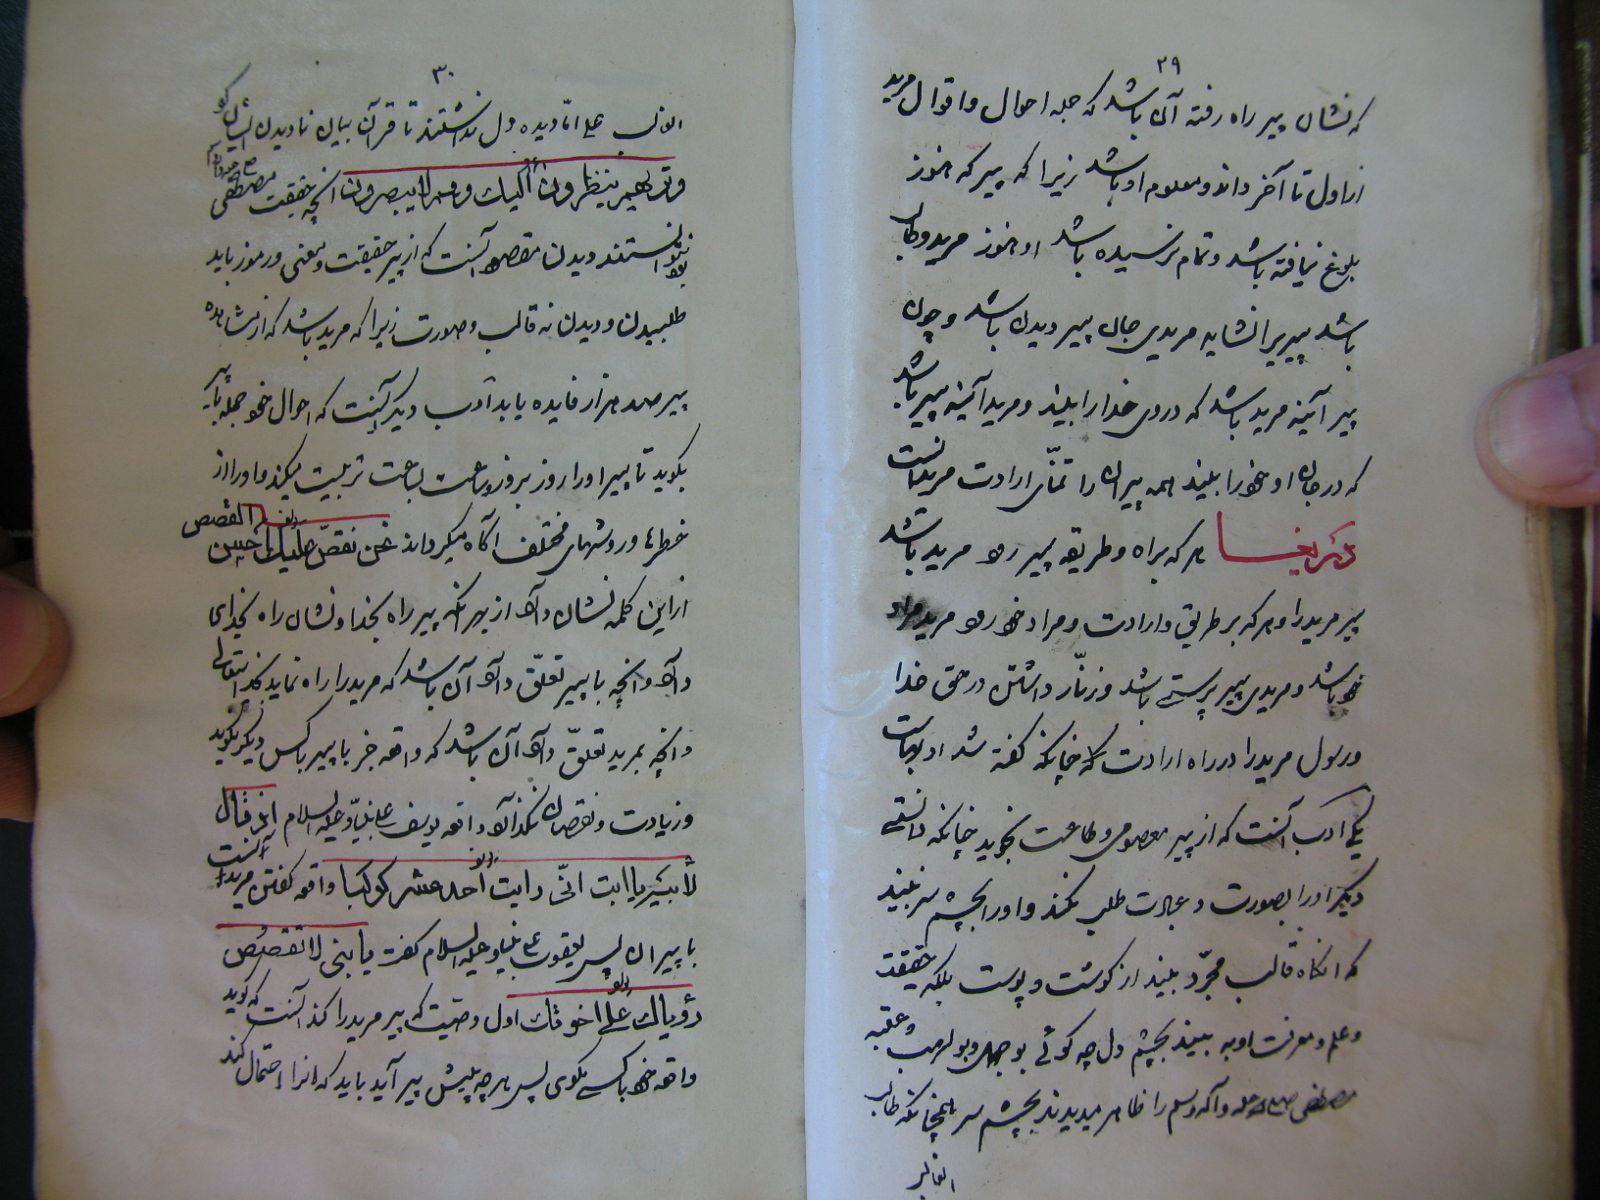 ۲۹
که نشان پیر راه رفته آن باشد که جمله احوال و اقوال مرید
از اول تا آخر داند و معلوم او باشد زیرا که پیر که هنوز
بلوغ نیافته باشد و تمام نرسیده باشد او هنوز مرید و طالب
باشد پیریرا نشاید مریدی جان پیر دیدن باشد و چون
پیر آئینه مرید باشد که دروی خدا را بیند و مرید آئینه پیر باشد
که در جان او خود را بیند همه پیران را تمنّای ارادت مریدانست
هر که براه و طریقه پیر رود مرید باشد
پیر مرید را و هر که بر طریق و ارادت و مراد خود رود مرید مراد
خود باشد و مریدی پیر پرستی باشد و زنّار داشتن در حق خدا
و رسول مرید را در راه ارادت که چنانکه گفته شد
یکی ادب آنست که از پیر معصومی و طاعت نجوید چنانکه دانستی
دیگر او را بصورت و عبادت طلب نکند و او را بچشم سر نبیند
که آنگاه قالب مجرّد بیند از گوشت و پوست بلکه حقیقت
و علم و معرفت او به بیند بچشم دل چه گوئی بوجهل و بولهب و عقبه
مصطفی صلی الله علیه وآله وسلم را ظاهر میدیدند بچشم سر همچنانکه طالب
۳۰
دیده دل نداشتند تا قرآن بیان نادیدن ایشان کرد
وتریهم ینظرون الیك وهم لا یبصرون آنچه حقیقت مصطفی
نتوانستند دیدن مقصود آنست که از پیر حقیقت و معنی و رموز باید
طلبیدن و دیدن نه قالب و صورت زیرا که مرید باشد که از مشاهده
پیر صد هزار فایده یابد ادب دیگر آنست که احوال خود جمله با پیر
بگوید تا پیر او را روز بروز و ساعت بساعت تربیت میکند و او را از
خطرها و روشهای مختلف آگاه میگرداند نحن نقصّ علیك احسن القصص
از این کلمه نشان داد از بهر آنکه پیر راه بخدا و نشان راه بخدای
داد و آنچه با پیر تعلّق دارد آن باشد که مرید را راه نماید بخدایتعالی
و آنچه بمرید تعلّق دارد آن باشد که واقعه جز با پیر با کس دیگر نگوید
و زیادت و نقصان نکند آن واقعه یوسف علی نبیّنا وعلیه السلام اذ قال
لأبیه یا ابت انّی رایت احد عشر کوکبا واقعه گفتن مرید آنست
با پیران پس یعقوب علی نبینا وعلیه السلام گفت یا بنی لا تقصص
رؤیاك علی اخوتك اول وصیت که پیر مرید را کند آنست که گوید
واقعه خود با کسی مگوی پس هر چه پیش پیر آید باید که آنرا احتمال کند